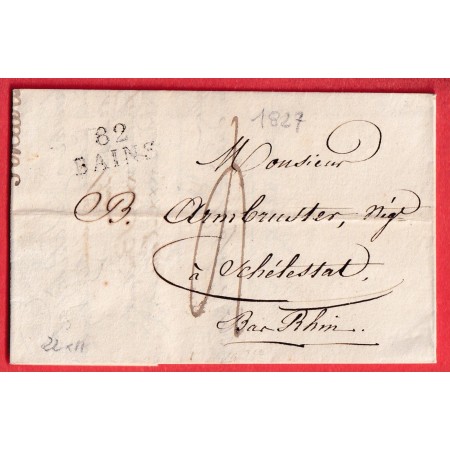 1827
82
BAINS
Monsieur
B. Armbruster, Nég.t
à Schélestat,
Bas Rhin.
22 x 11